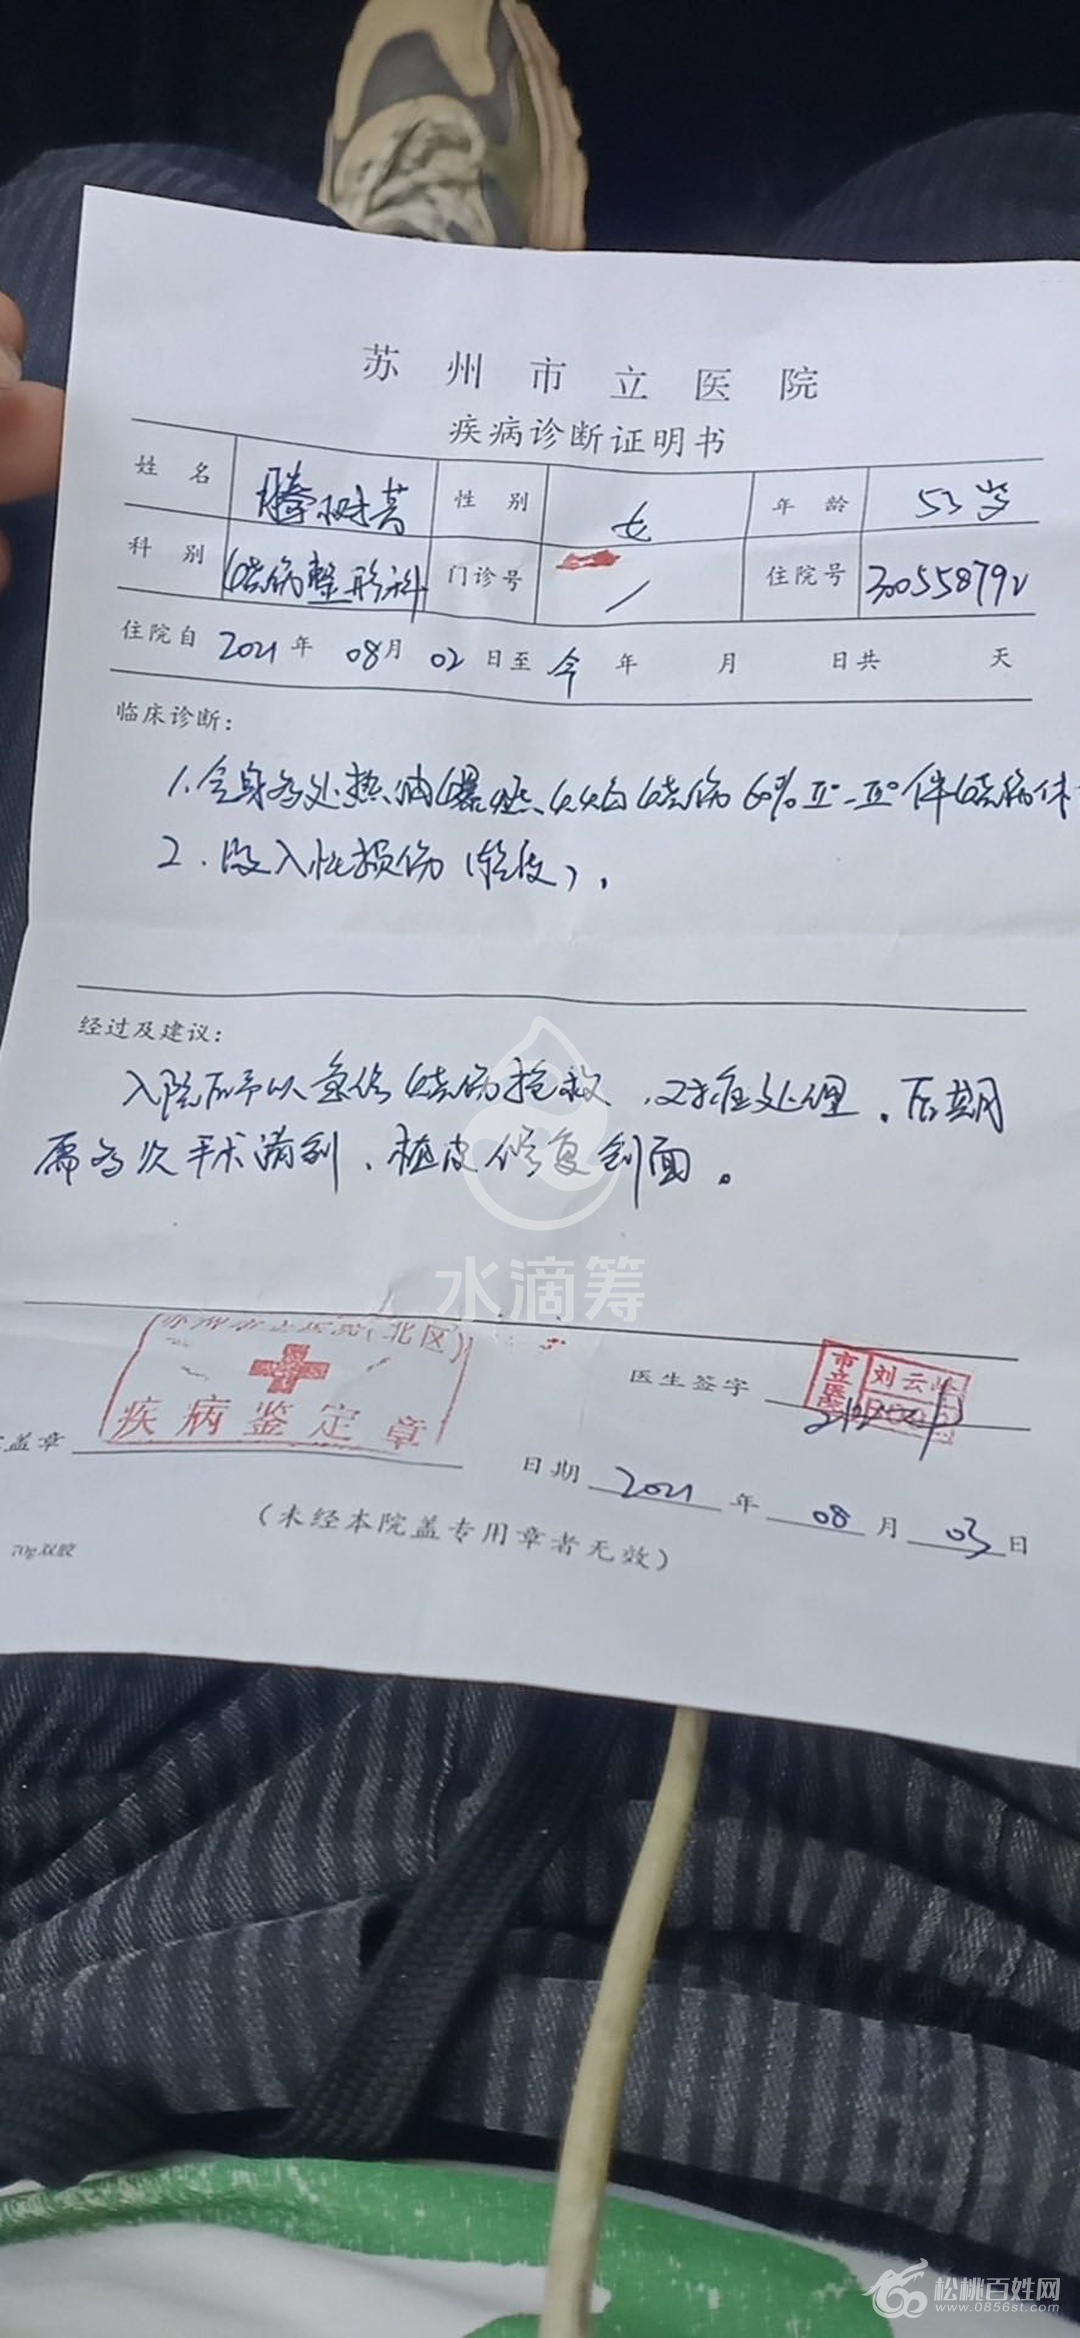 苏州市立医院
疾病诊断证明书
姓名 滕树芳 性别 女 年龄 53岁
科别 烧伤整形科 门诊号 / 住院号 300558792
住院自 2021年 08月 02日至 今 年 月 日共 天
临床诊断:
1.全身多处热油爆燃火焰烧伤60% II°-III°伴烧伤休
2.吸入性损伤(轻度).
经过及建议:
入院后予以 烧伤抢救.对症处理.后期
需多次手术清创、植皮修复创面。
水滴筹
苏州市立医院(北区)
疾病鉴定章
盖章
医生签字
市立医院 刘云
日期 2021 年 08 月 03 日
(未经本院盖专用章者无效)
70g双胶
松桃百姓网
www.0856st.com